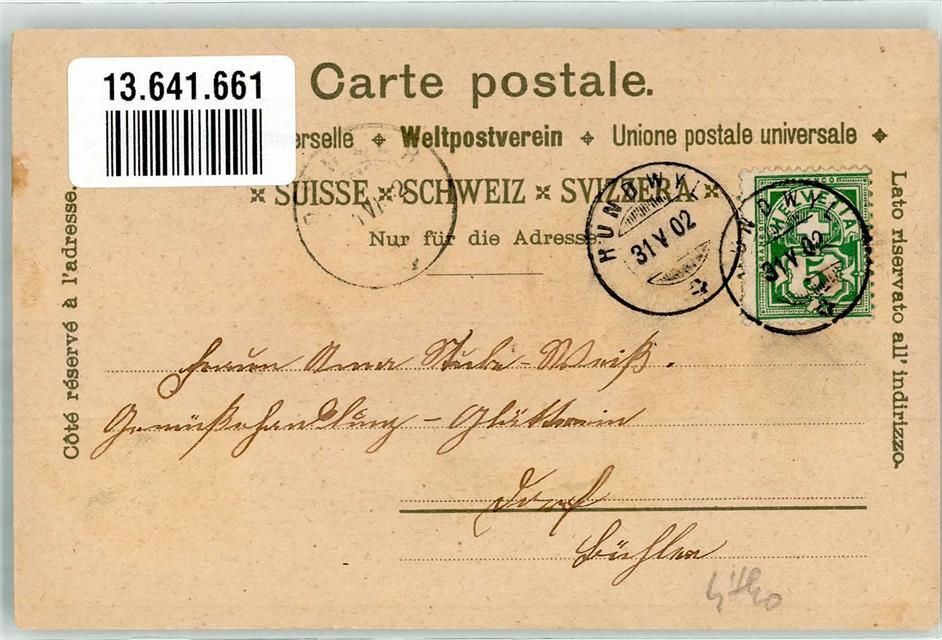 13.641.661
Carte postale.
erselle Weltpostverein Unione postale universale
SUISSE SCHWEIZ SVIZZERA
Nur für die Adresse.
Côté réservé à l'adresse.
Lato riservato all' indirizzo.
HUNDWYL
31 V 02
HUNDWYL
31 V 02
HELVETIA
Anna Weiß.
Gemüsehandlung
Dorf
Bühler
Litho